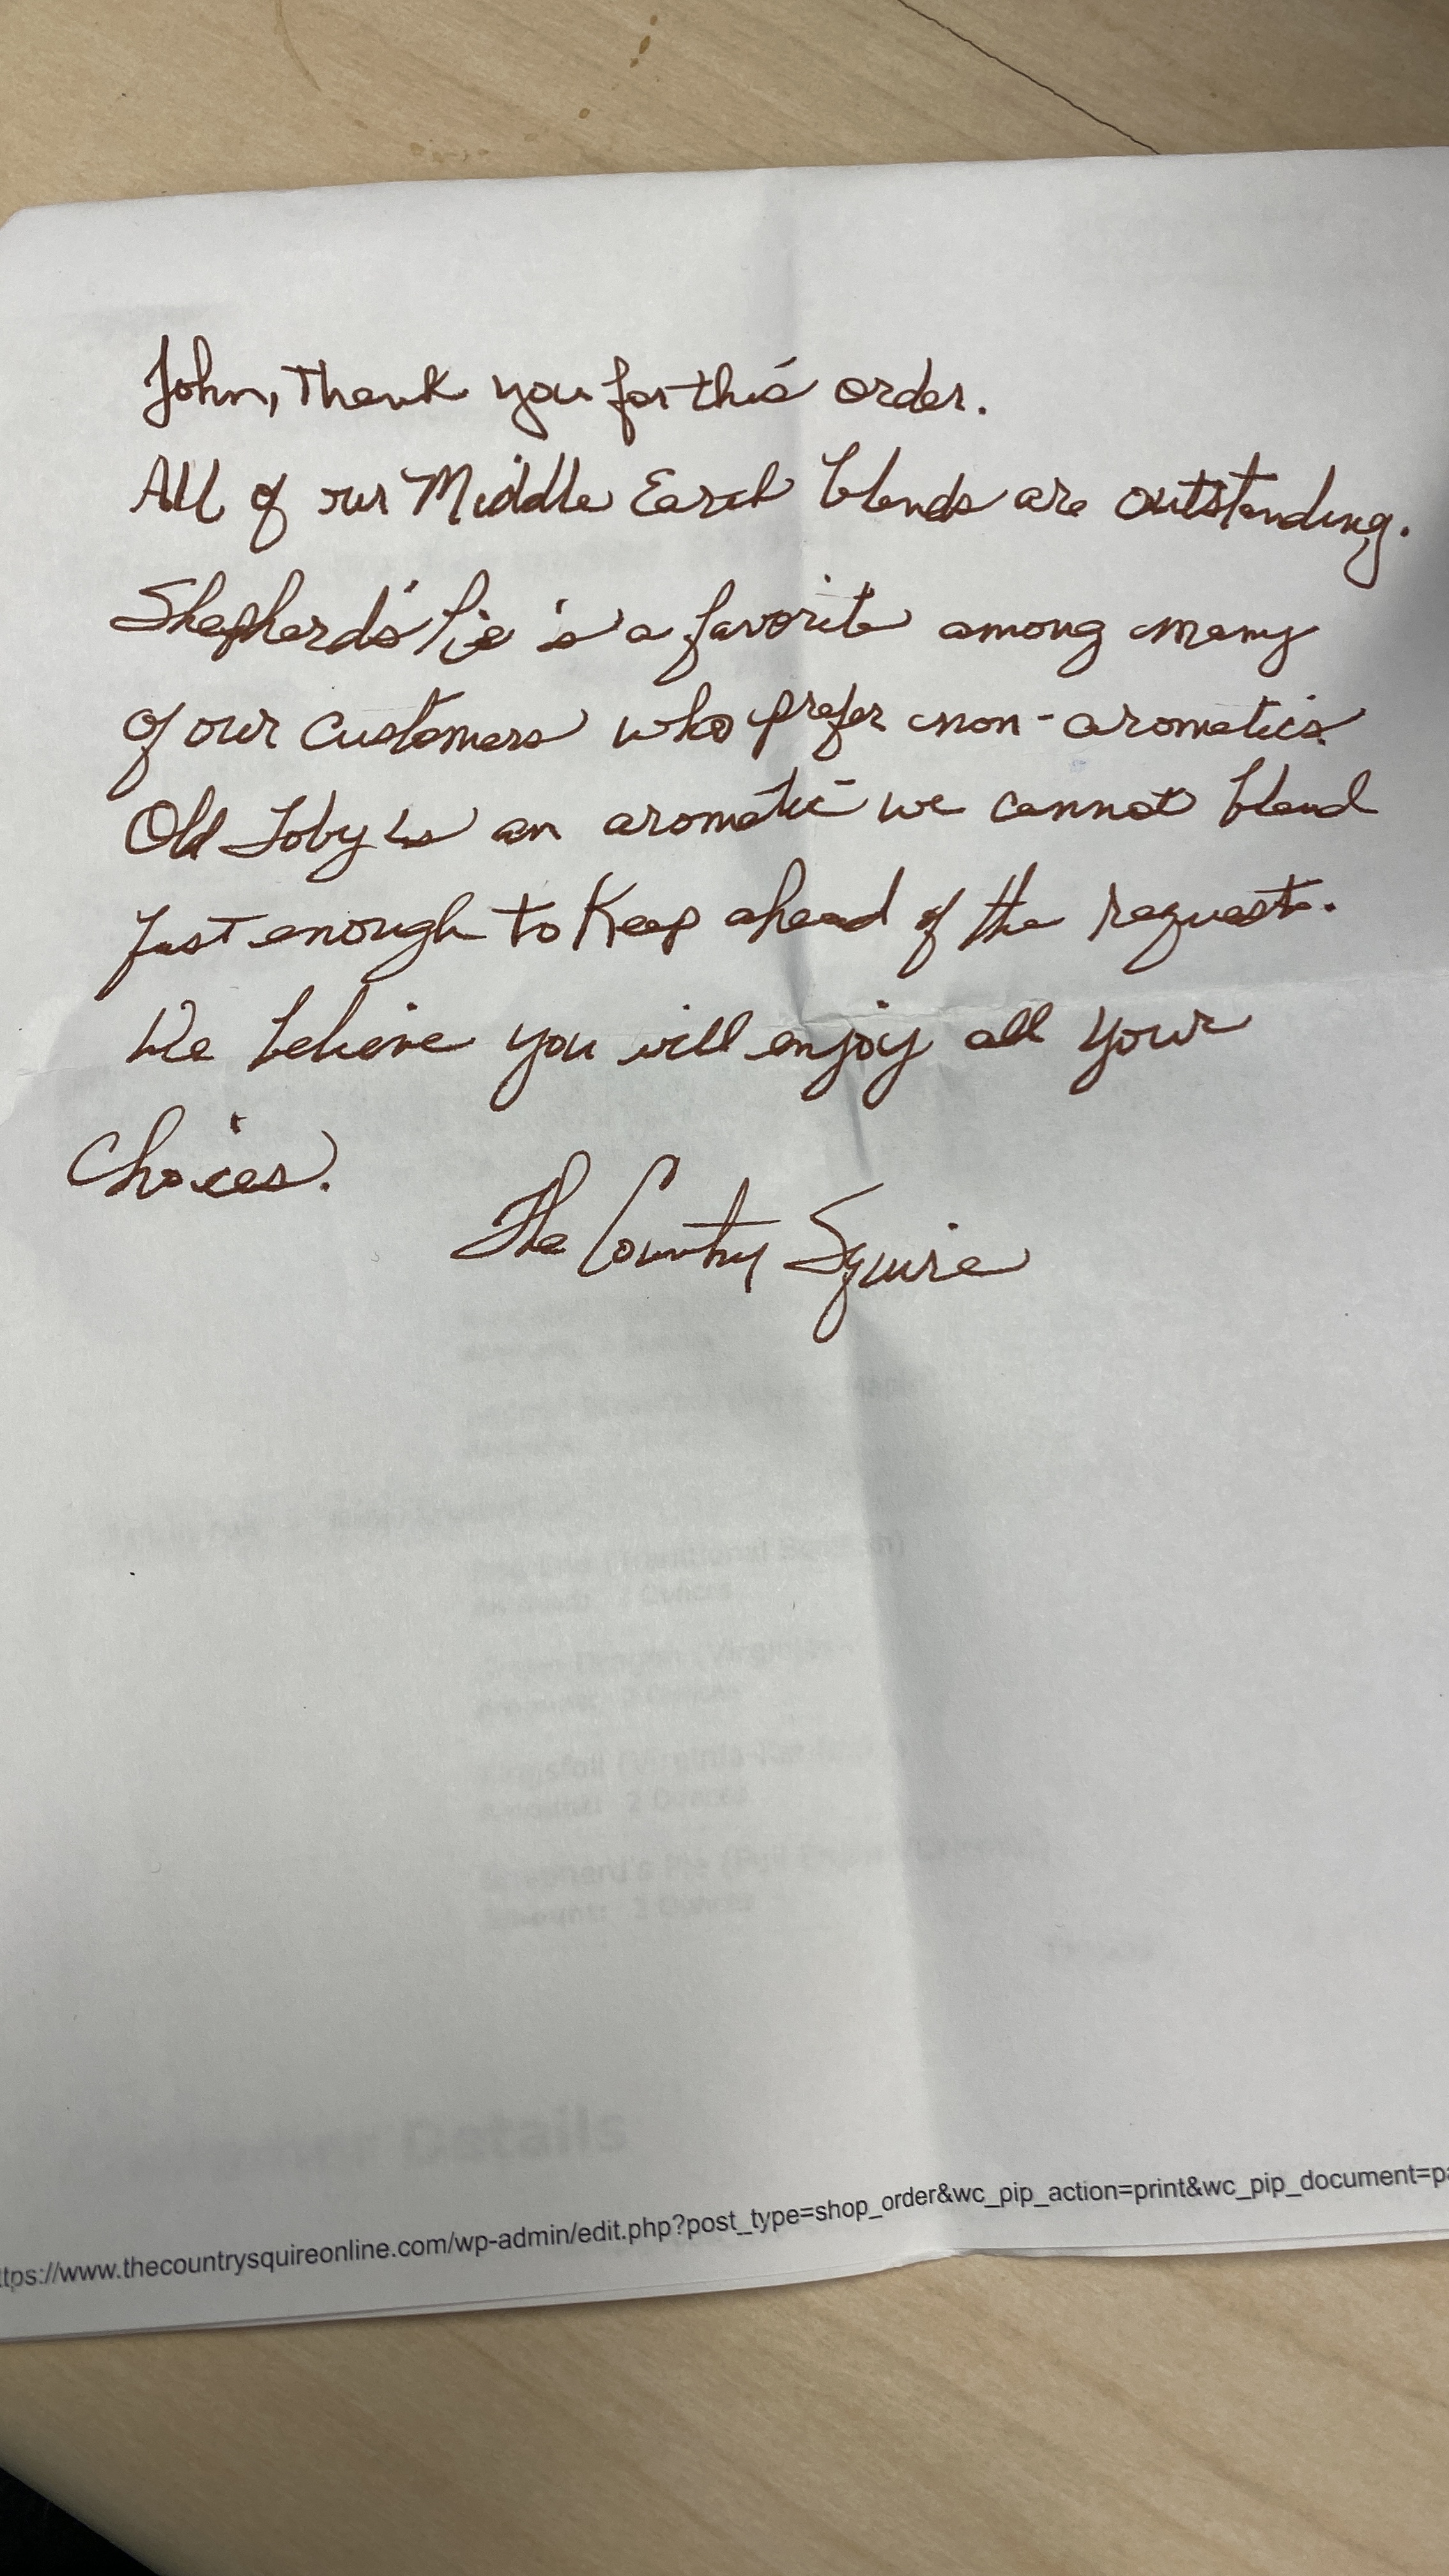 John, Thank you for this order.
All of our Middle Earth blends are outstanding.
Shepherd's Pie is a favorite among many
of our customers who prefer non-aromatics.
Old Toby is an aromatic we cannot blend
just enough to keep ahead of the requests.
We believe you will enjoy all your
choices.
The Country Squire
(Traditional
2 Ounces
(Virginia
2 Ounces
(Virginia
2 Ounces
Shepherd's Pie (Full English
Amount: 2 Ounces
Details
ttps://www.thecountrysquireonline.com/wp-admin/edit.php?post_type=shop_order&wc_pip_action=print&wc_pip_document=pa